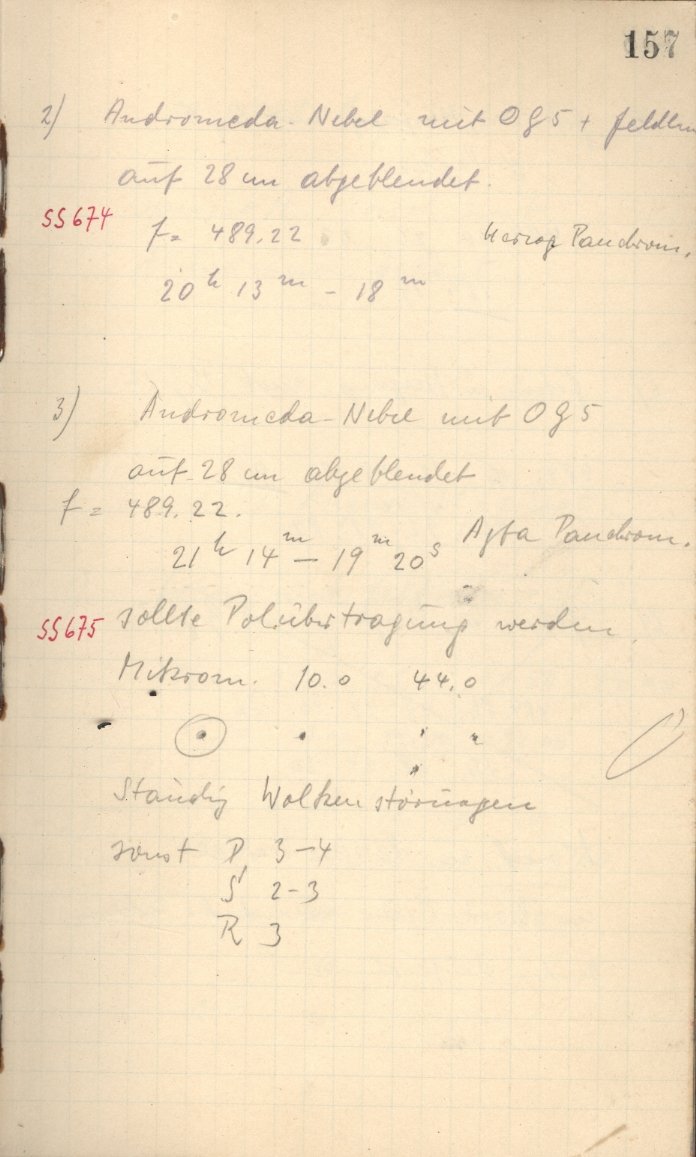 157
2) Andromeda-Nebel mit OG5 + Feldlin
auf 28 cm abgeblendet.
SS674 f = 489.22 Herzog Panchrom.
20h 13m - 18m
3) Andromeda-Nebel mit OG5
auf 28 cm abgeblendet
f = 489.22.
21h 14m — 19m 20s Agfa Panchrom.
SS675 sollte Polübertragung werden
Mikrom. 10.0 44.0
Ständig Wolkenstörungen
sonst P 3-4
S 2-3
R 3